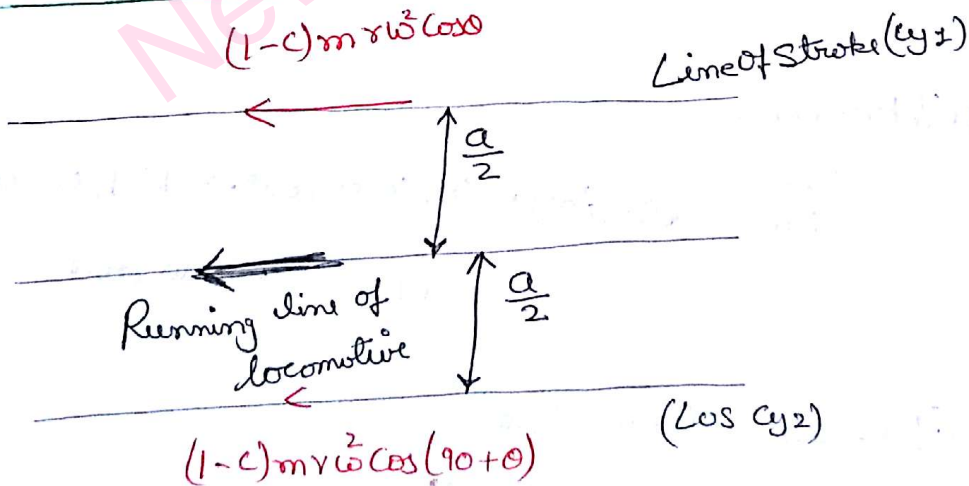 (1-c)mrω²Cosθ
Line Of Stroke (Cy 1)
a/2
a/2
Running line of
locomotive
(LOS Cy 2)
(1-c)mrω²Cos(90+θ)